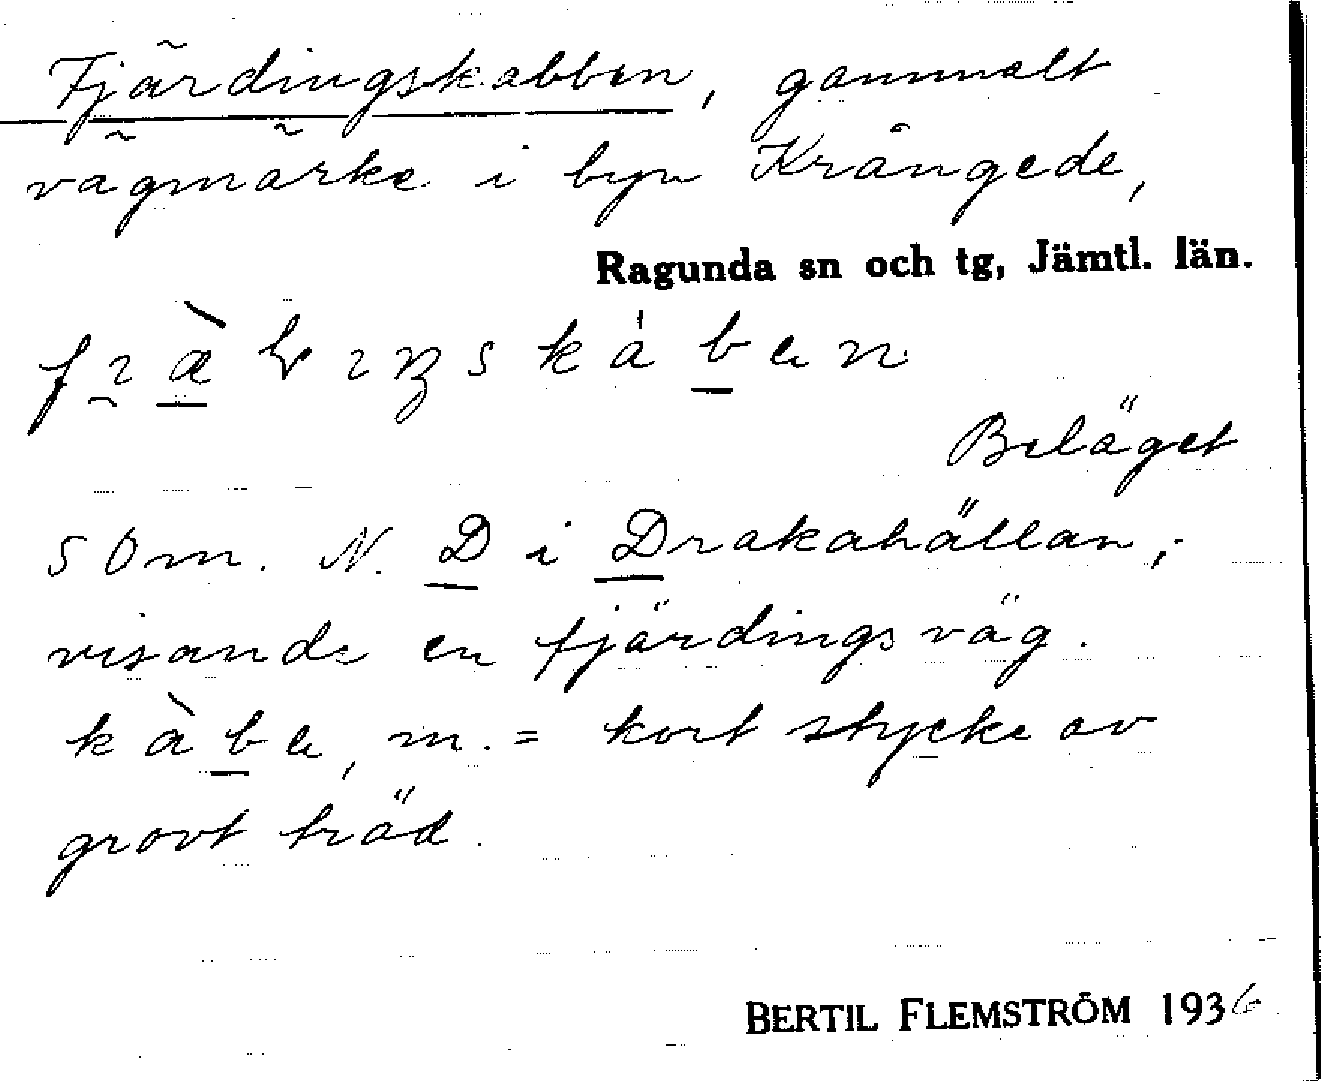 Fjärdingskabben, gammalt
vägmärke i byn Krångede,
Ragunda sn och tg, Jämtl. län.
Beläget
50m. N. D i Drakahällan,
visande en fjärdingsväg.
kàbe, m. = kort stycke av
grovt träd.
BERTIL FLEMSTRÖM 1936